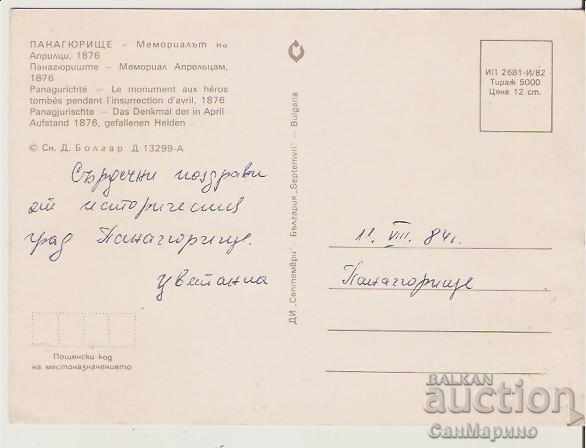 ПАНАГЮРИЩЕ – Мемориалът на
Априлци, 1876
Панагюриште – Мемориал Апрельцам,
1876
Panagurichté – Le monument aux héros
tombés pendant l'insurrection d'avril, 1876
Panagjurischte – Das Denkmal der in April
Aufstand 1876, gefallenen Helden
© Сн. Д. Болаар Д 13299-А
Сърдечни поздрави
от историческия
град Панагюрище.
Цветанка
Пощенски код
на местоназначението
ДИ „Септември" България „Septemvri" – Bulgaria
ИП 2681-И/82
Тираж 5000
Цена 12 ст.
11. VIII. 84 г.
Панагюрище
BALKAN
auction
СанМарино